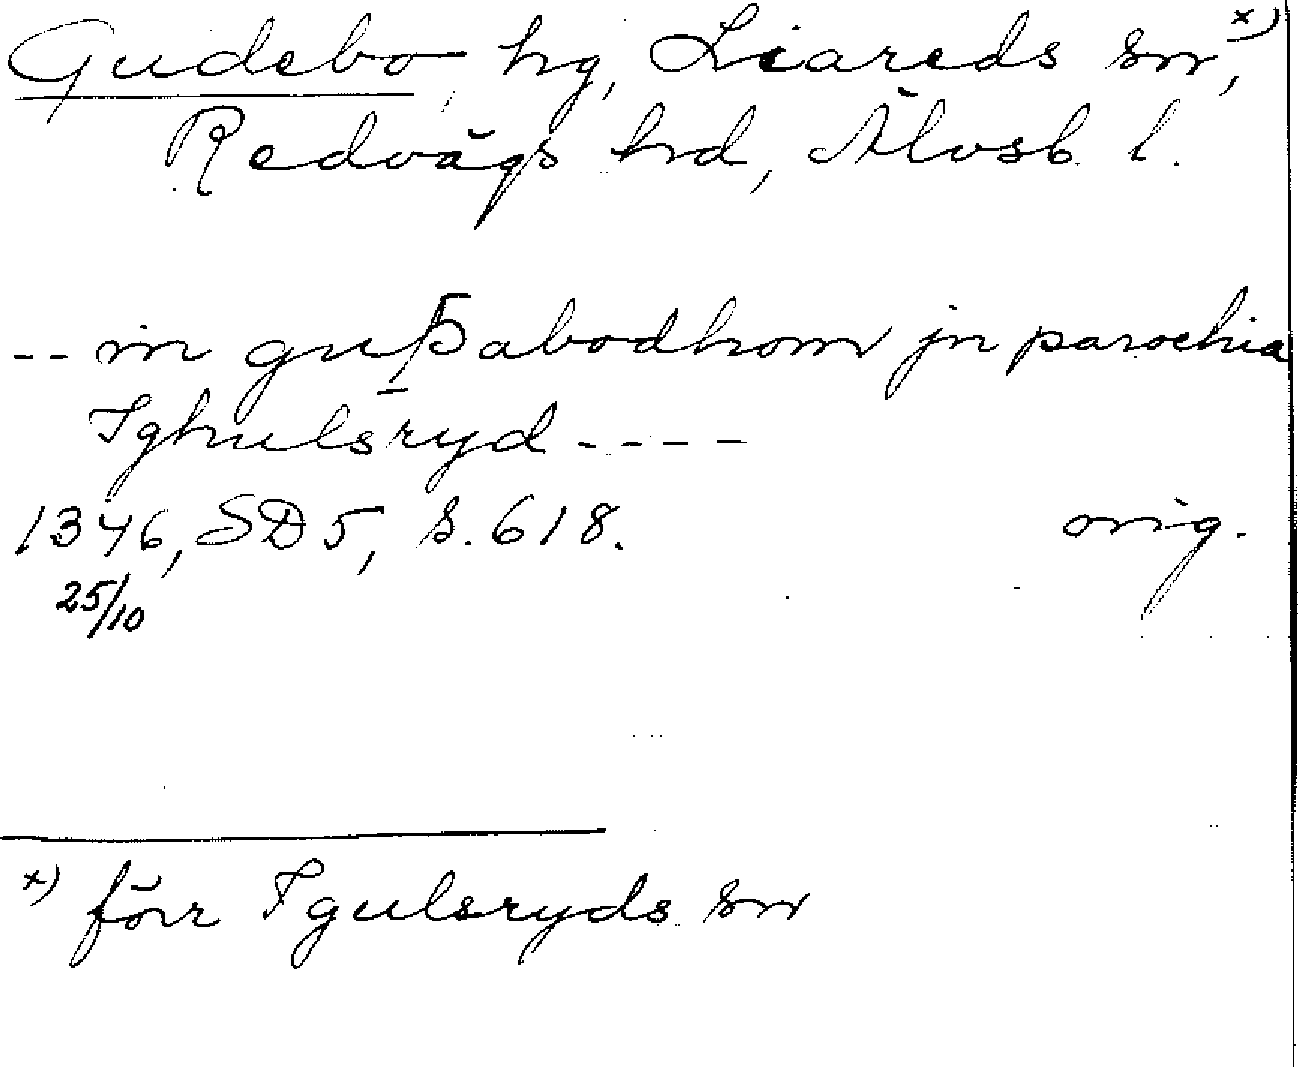 Gudebo, hg, Liareds sn,x)
Redvägs hd, Älvsb. l.
-- in guþabodhom jn parochia
Ighulsryd ----
1346, SD 5, s. 618. orig.
25/10
x) förr Igulsryds sn